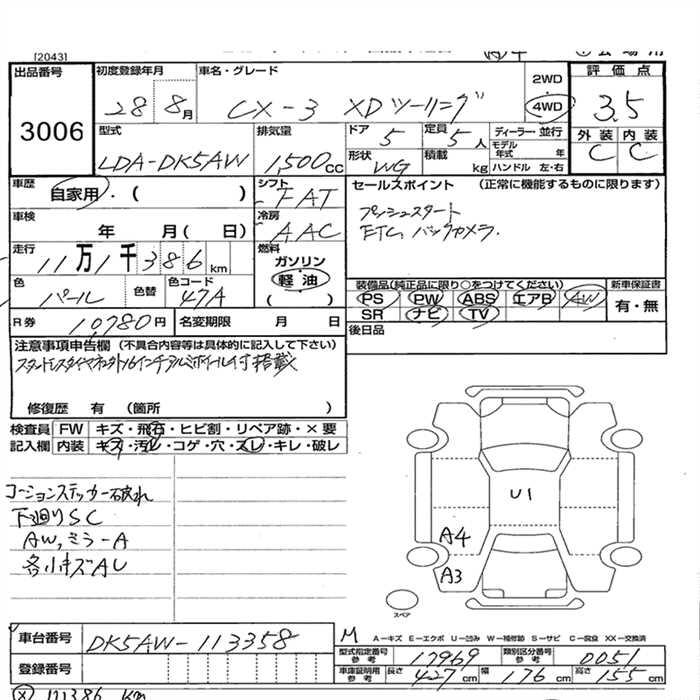 [2043]
出品番号 初度登録年月 車名・グレード 2WD 評価点
3006 28 8月 CX-3 XDツーリング 4WD 3.5
外装 内装
C C
型式 排気量 ドア 定員 ディーラー・並行
LDA-DK5AW 1,500cc 5 5人 モデル年式 年
形状 積載 kg ハンドル 左・右
WG
車歴 自家用・( ) シフト FAT セールスポイント (正常に機能するものに限ります)
車検 年 月( 日) 冷房 AAC プッシュスタート
ETC、バックカメラ.
走行 11万1千386km 燃料 ガソリン 軽油 ( )
色 パール 色替 色コード 47A
装備品(純正品に限り○をつけてください) 新車保証書
PS PW ABS エアB AW 有・無
SR ナビ TV
R券 10,780円 名変期限 月 日 後日品
注意事項申告欄 (不具合内容等は具体的に記入して下さい)
修復歴 有 (箇所 )
検査員 FW キズ・飛石・ヒビ割・リペア跡・×要
記入欄 内装 キズ・汚レ・コゲ・穴・スレ・キレ・破レ
コーションステッカー破れ
下廻りSC
AW,ミラーA
各小キズAU
U1
A4
A3
スペア
車台番号 DK5AW-113358
登録番号
M A-キズ E-エクボ U-凹み W-補修跡 S-サビ C-腐食 XX-交換済
型式指定番号 参考 17969 類別区分番号 参考 0051
車庫証明用 参考 長さ 427cm 幅 176cm 高さ 155cm
111386 Km